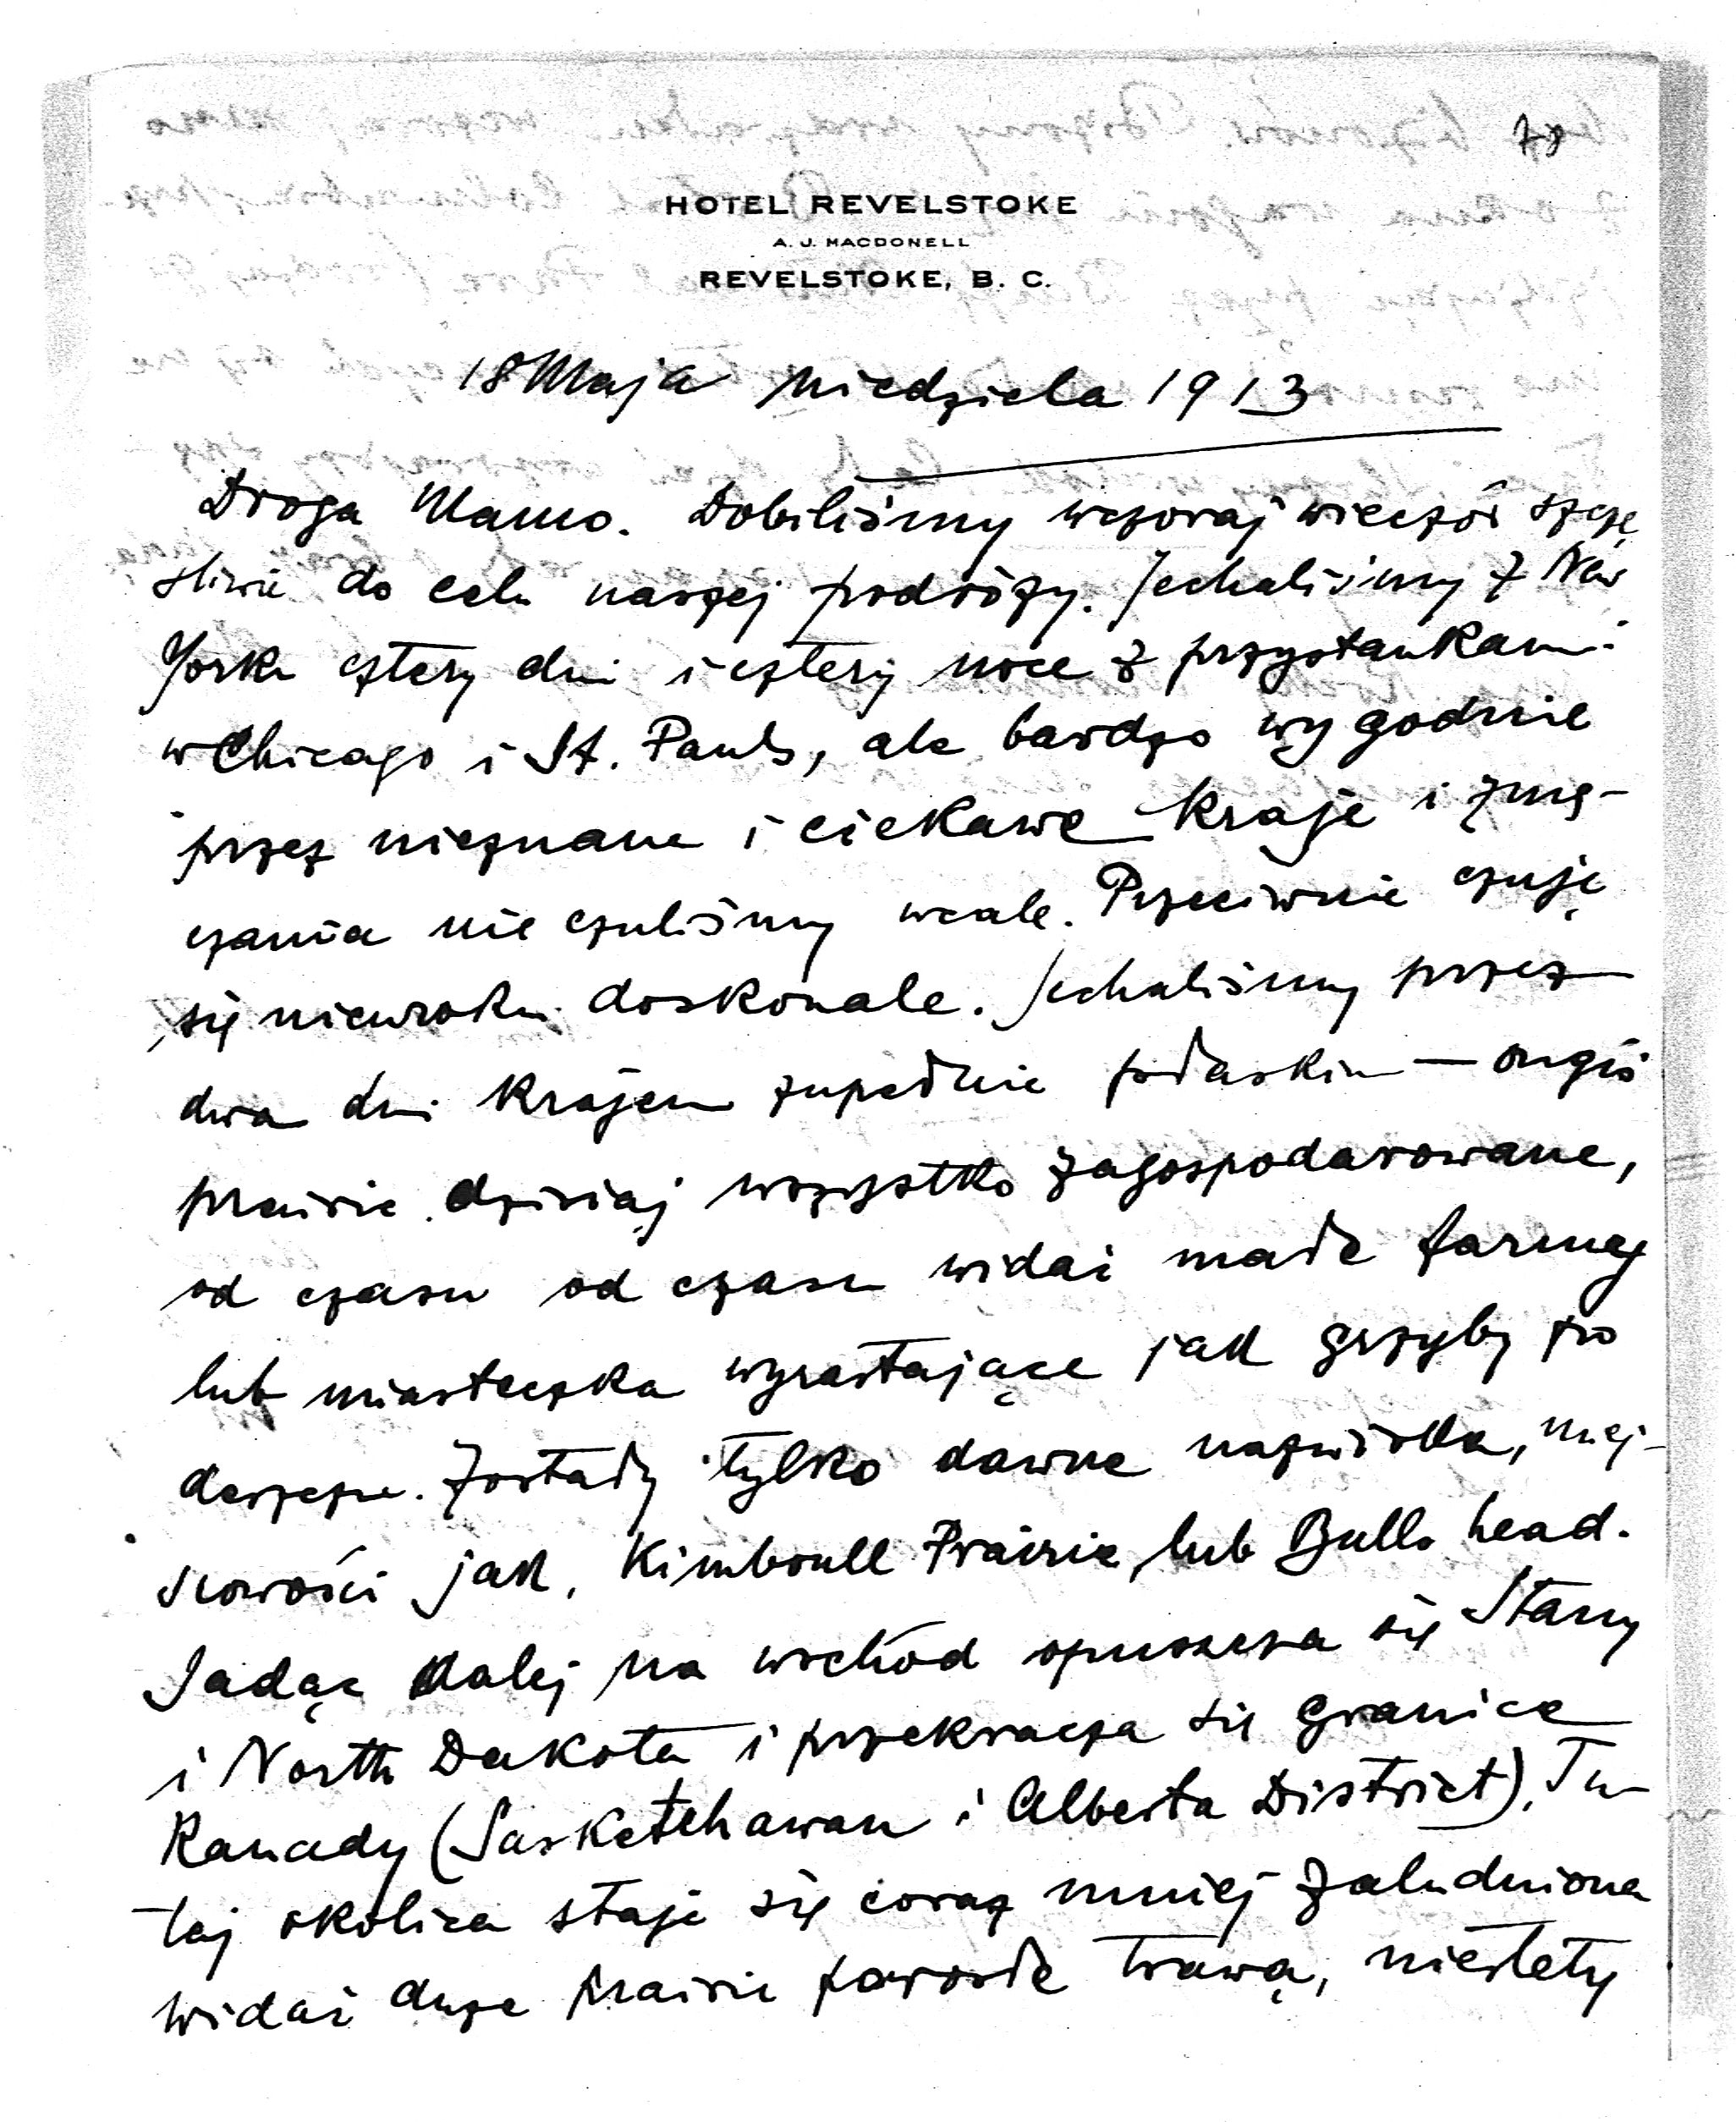 78
HOTEL REVELSTOKE
A. J. MACDONELL
REVELSTOKE, B. C.
18 Maja Niedziela 1913
Droga Mamo. Dobiliśmy wczoraj wieczór szczę
śliwie do celu naszej podróży. Jechaliśmy z New
Yorku cztery dni i cztery noce z przystankami
w Chicago i St. Pauls, ale bardzo wygodnie
przez nieznane i ciekawe kraje i zmę-
czenia nie czuliśmy wcale. Przeciwnie czuję
się nieuroku doskonale. Jechaliśmy przez
dwa dni krajem zupełnie płaskim — ongiś
prairie dzisiaj wszystko zagospodarowane,
od czasu od czasu widać małe farmy
lub miasteczka wyrastające jak grzyby po
deszczu. Zostały tylko dawne nazwiska, miej-
scowości jak, Kimboull Prairie, lub Bulls head.
Jadąc dalej na wschód opuszcza się Stany
i North Dakota i przekracza się granice
Kanady (Sasketchawan i Alberta District). Tu-
taj okolica staje się coraz mniej zaludniona
widać duże prairie porosłe trawą, niestety